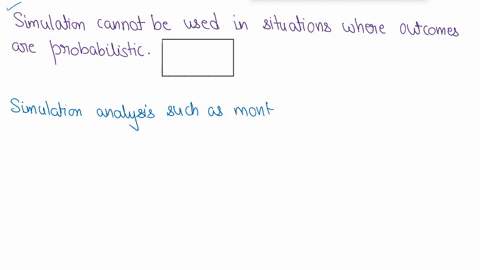 Simulation cannot be used in situations where outcomes
are probabilistic.
Simulation analysis such as mont